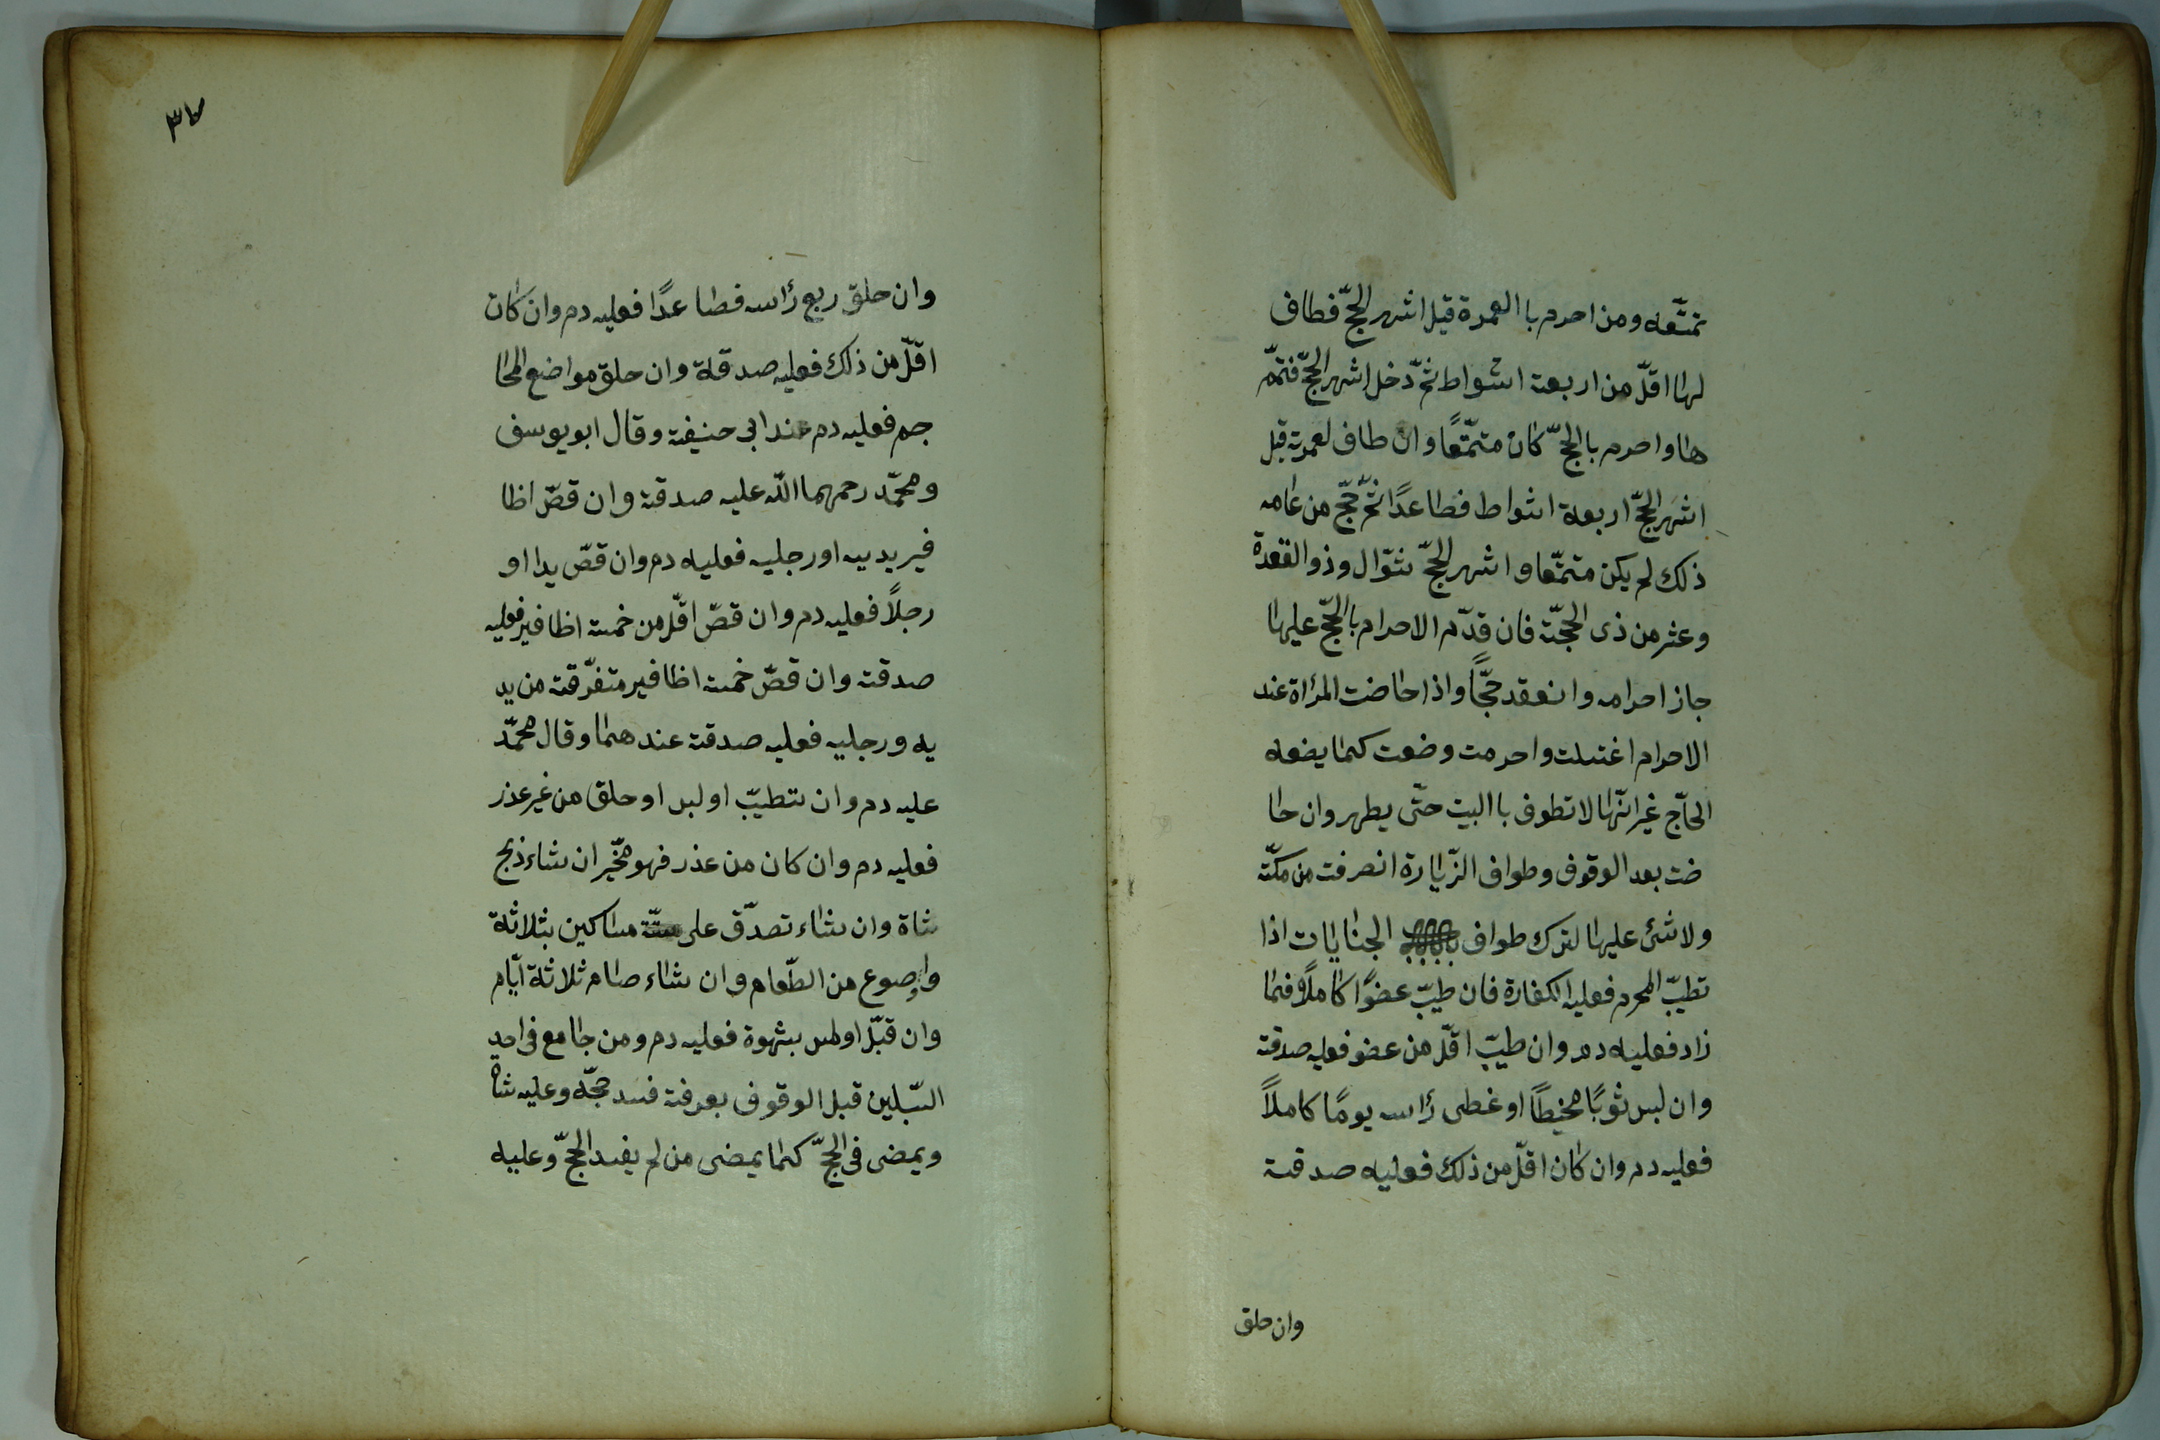 تمتّعه ومن احرم باالعمرة قبل اشهر الحجّ فطاف
لها اقلّ من اربعة اشواط ثمّ دخل اشهر الحجّ فتمّم
ها واحرم بالحجّ كان متمتّعًا وان طاف لعمرته قبل
اشهر الحجّ اربعة اشواط فصاعدًا ثمّ حجّ من عامه
ذلك لم يكن متمتّعا واشهر الحجّ شوّال وذوالقعدة
وعشر من ذى الحجّة فان قدّم الاحرام بالحجّ عليها
جاز احرامه وانعقد حجًّا واذا حاضت المرأة عند
الاحرام اغتسلت واحرمت وضعت كما يضعه
الحاّج غير انّها لا تطوف باالبيت حتّى يطهر وان حا
ضت بعد الوقوف وطواف الزّيارة انصرفت من مكّة
ولا شئ عليها لترك طواف الجنايات اذا
تطيّب المحرم فعليه الكفارة فان طيّب عضوًا كاملًا فما
زاد فعليه دم وان طيّب اقلّ من عضو فعليه صدقة
وان لبس ثوبًا مخيطًا او غطى رأسه يومًا كاملًا
فعليه دم وان كان اقلّ من ذلك فعليه صدقة
وان حلق
٣٧
وان حلق ربع رأسه فصاعدًا فعليه دم وان كان
اقلّ من ذلك فعليه صدقة وان حلق مواضع المحا
جم فعليه دم عند ابى حنيفة وقال ابو يوسف
ومحمّد رحمهما اللّه عليه صدقة وان قصّ اظا
فير يديه او رجليه فعليه دم وان قصّ يدا او
رجلًا فعليه دم وان قصّ اقلّ من خمسة اظافير فعليه
صدقة وان قصّ خمسة اظافير متفرّقة من يد
يه ورجليه فعليه صدقة عندهما وقال محمّد
عليه دم وان تطيّب او لبس او حلق من غير عذر
فعليه دم وان كان من عذر فهو مخيّر ان شاء ذبح
شاة وان شاء تصدّق على ستّة مساكين بثلاثة
واصوع من الطّعام وان شاء صام ثلاثة ايّام
وان قبّل او لمس بشهوة فعليه دم ومن جامع فى احد
السّبلين قبل الوقوف بعرفة فسد حجّه وعليه شاة
ويمضى فى الحجّ كما يمضى من لم يفسد الحجّ وعليه